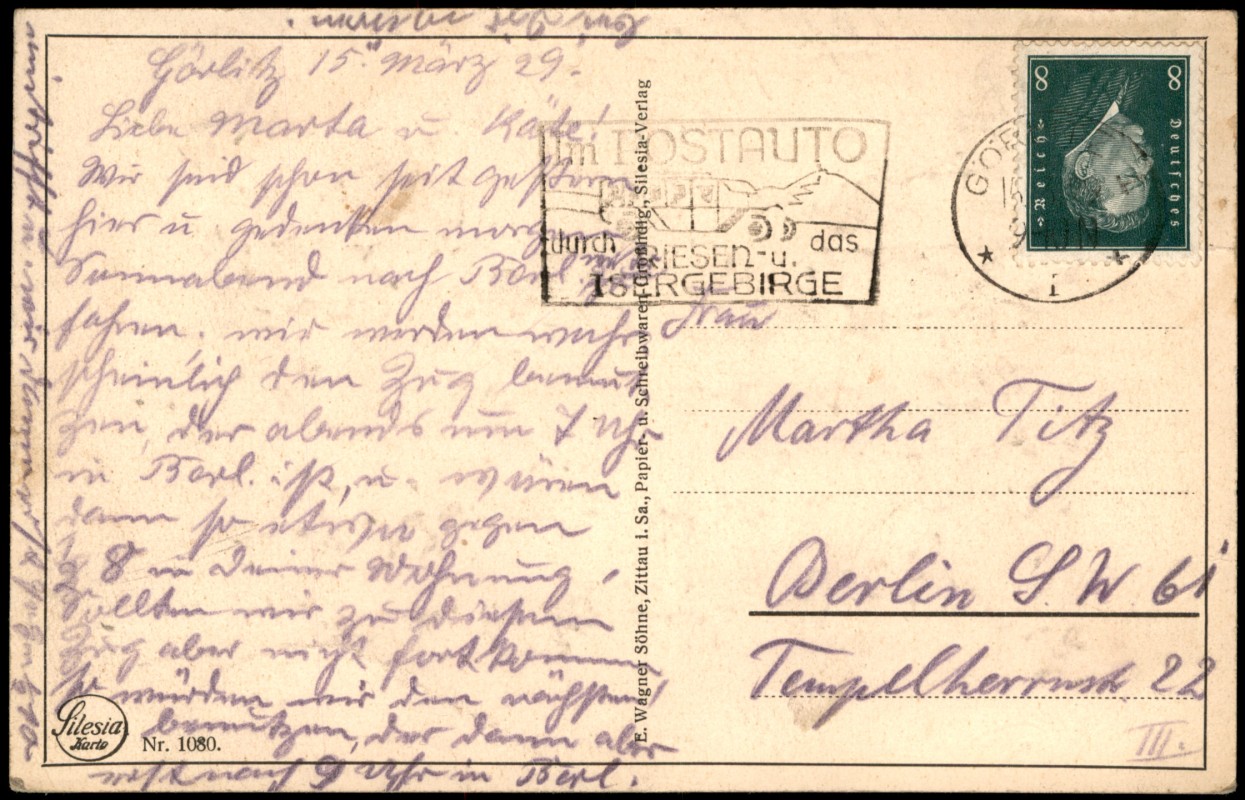 Görlitz 15. März 29.
Liebe Marta u. Käte!
Wir sind schon seit gestern
hier u. gedenken morgen
Sonnabend nach Berl. zu
fahren. wir werden wahr
scheinlich den Zug benut
zen, der abends um 7 Uhr
in Berl. ist, u. wären
dann so etwa gegen
8 in Deiner Wohnung!
Sollten wir zu diesem
Zug aber nicht fortkommen
so würden wir den nächsten
benutzen, der dann aber
erst nach 9 Uhr in Berl.
Silesia
Karte
Nr. 1080.
E. Wagner Söhne, Zittau i. Sa., Papier- u. Schreibwaren-Großhdlg., Silesia-Verlag
Im POSTAUTO
durch das
RIESEN- u.
ISERGEBIRGE
8 8
Deutsches
Reich
Frau
Martha Titz
Berlin S.W. 61
Tempelherrnstr. 22
III.